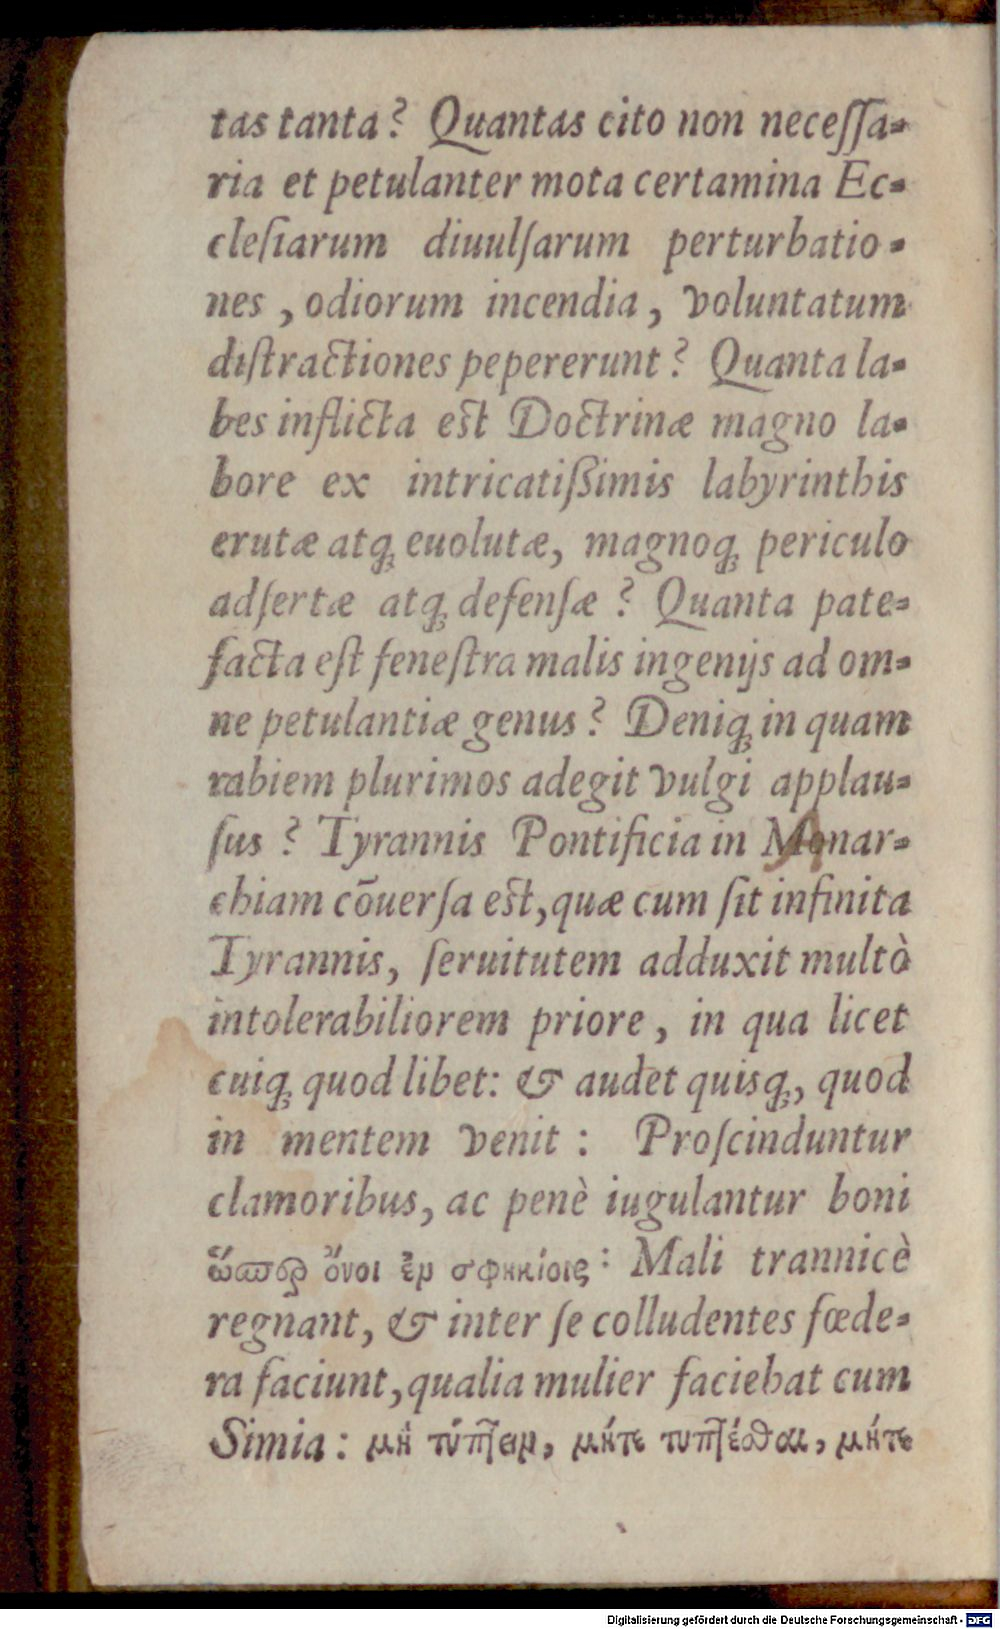 tas tanta? Quantas cito non neceſſa-
ria et petulanter mota certamina Ec-
cleſiarum diuulſarum perturbatio-
nes, odiorum incendia, voluntatum
diſtractiones pepererunt? Quanta la-
bes inflicta est Doctrinæ magno la-
bore ex intricatiſsimis labyrinthis
erutæ atq; euolutæ, magnoq; periculo
adſertæ atq; defenſæ? Quanta pate-
facta eſt feneſtra malis ingenijs ad om-
ne petulantiæ genus? Deniq; in quam
rabiem plurimos adegit vulgi applau-
ſus? Tyrannis Pontificia in Monar-
chiam cōuerſa est, quæ cum ſit infinita
Tyrannis, ſeruitutem adduxit multò
intolerabiliorem priore, in qua licet
cuiq; quod libet: & audet quisq;, quod
in mentem venit: Proſcinduntur
clamoribus, ac penè iugulantur boni
ὥσπερ ὄνοι ἐν σφηκίοις: Mali trannicè
regnant, & inter ſe colludentes fœde-
ra faciunt, qualia mulier faciebat cum
Simia: μὴ τύπτειν, μήτε τυπτέσθαι, μήτε
Digitalisierung gefördert durch die Deutsche Forschungsgemeinschaft - DFG